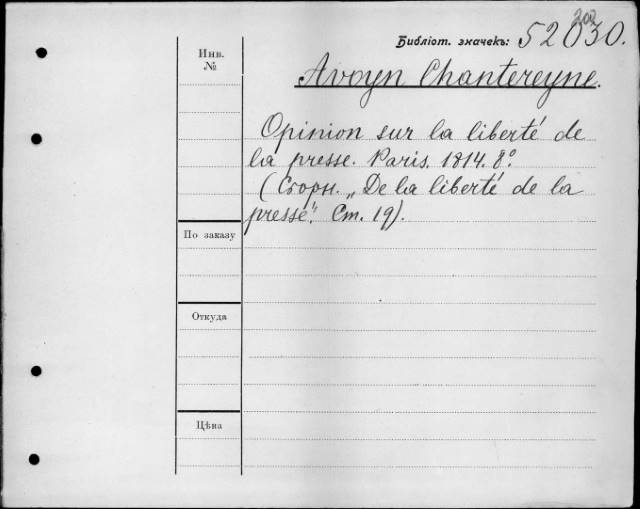 200
Библіот. значекъ: 52030.
Инв.
№
Avoyn Chantereyne.
Opinion sur la liberté de
la presse. Paris. 1814. 8°.
(Сборн. „De la liberté de la
presse“. Ст. 19).
По заказу
Откуда
Цѣна